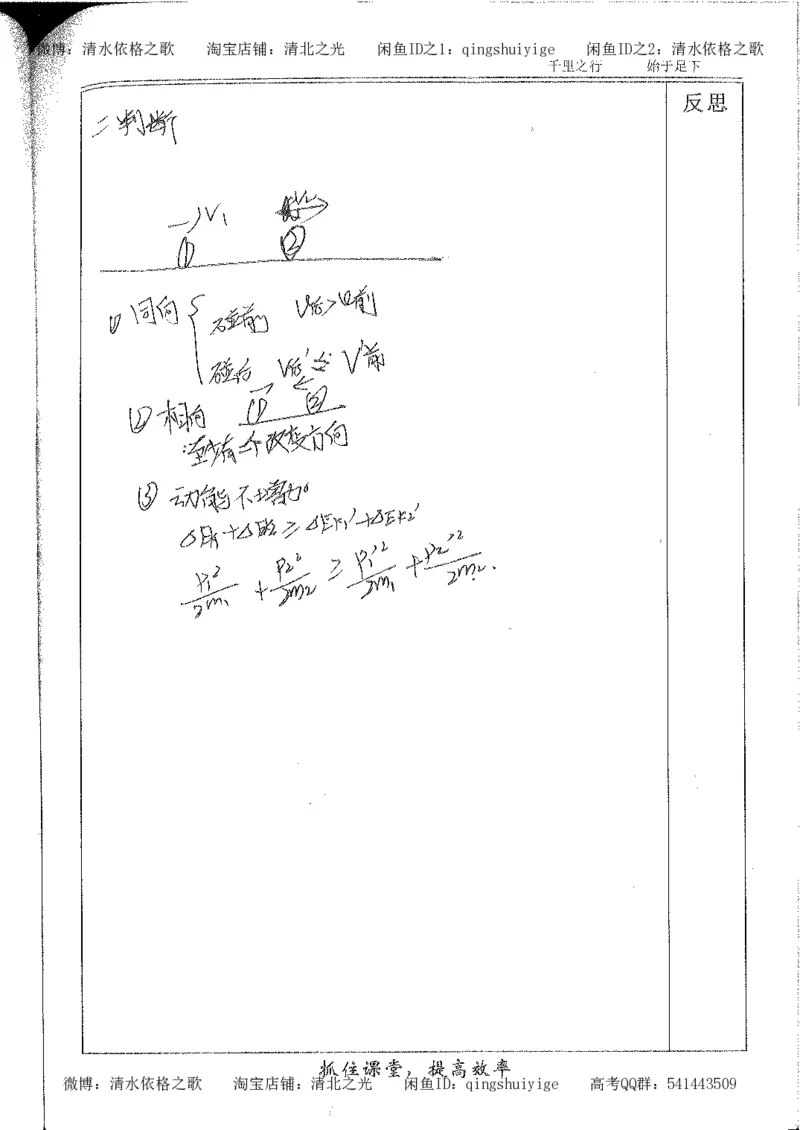 微博：清水依格之歌 淘宝店铺：清北之光 闲鱼ID之1：qingshuiyige 闲鱼ID之2：清水依格之歌
千里之行 始于足下
反思
二判断
→V₁
① ②
① 同向 { 碰前 V后>V前
碰后 V后′≤V′前
② 相向 ① ②
至少有一个改变方向
③ 动能不增加
ΔEk₁+ΔEk₂≥ΔEk₁′+ΔEk₂′
P₁²/2m₁ + P₂²/2m₂ ≥ P₁′²/2m₁ + P₂′²/2m₂.
抓住课堂，提高效率
微博：清水依格之歌 淘宝店铺：清北之光 闲鱼ID：qingshuiyige 高考QQ群：541443509